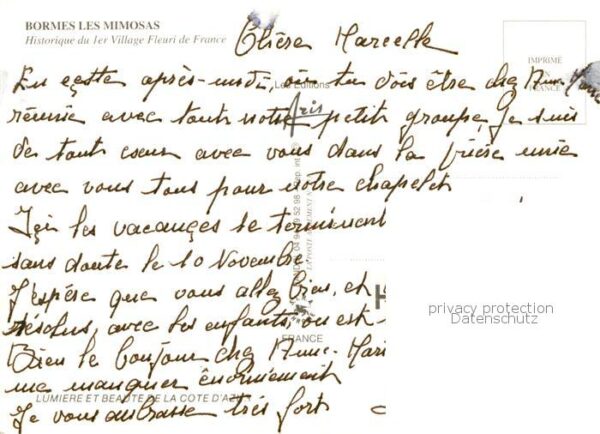 BORMES LES MIMOSAS
Historique du 1er Village Fleuri de France
Chère Marcelle
IMPRIMÉ
EN
FRANCE
En cette après-midi, où tu dois être chez Anne-Marie
Les Editions
Aris
réunie avec tout notre petit groupe, Je suis
de tout coeur avec vous dans la prière unie
avec vous tous pour notre chapelet
Içi les vacances se terminent
sans doute le 10 Novembre
J'espère que vous allez bien, et
avec les enfants, où est-
Bien le bonjour chez Anne-Mari
me manquer énormément
FRANCE
LUMIERE ET BEAUTE DE LA COTE D'AZUR
Je vous embrasse très fort
privacy protection
Datenschutz